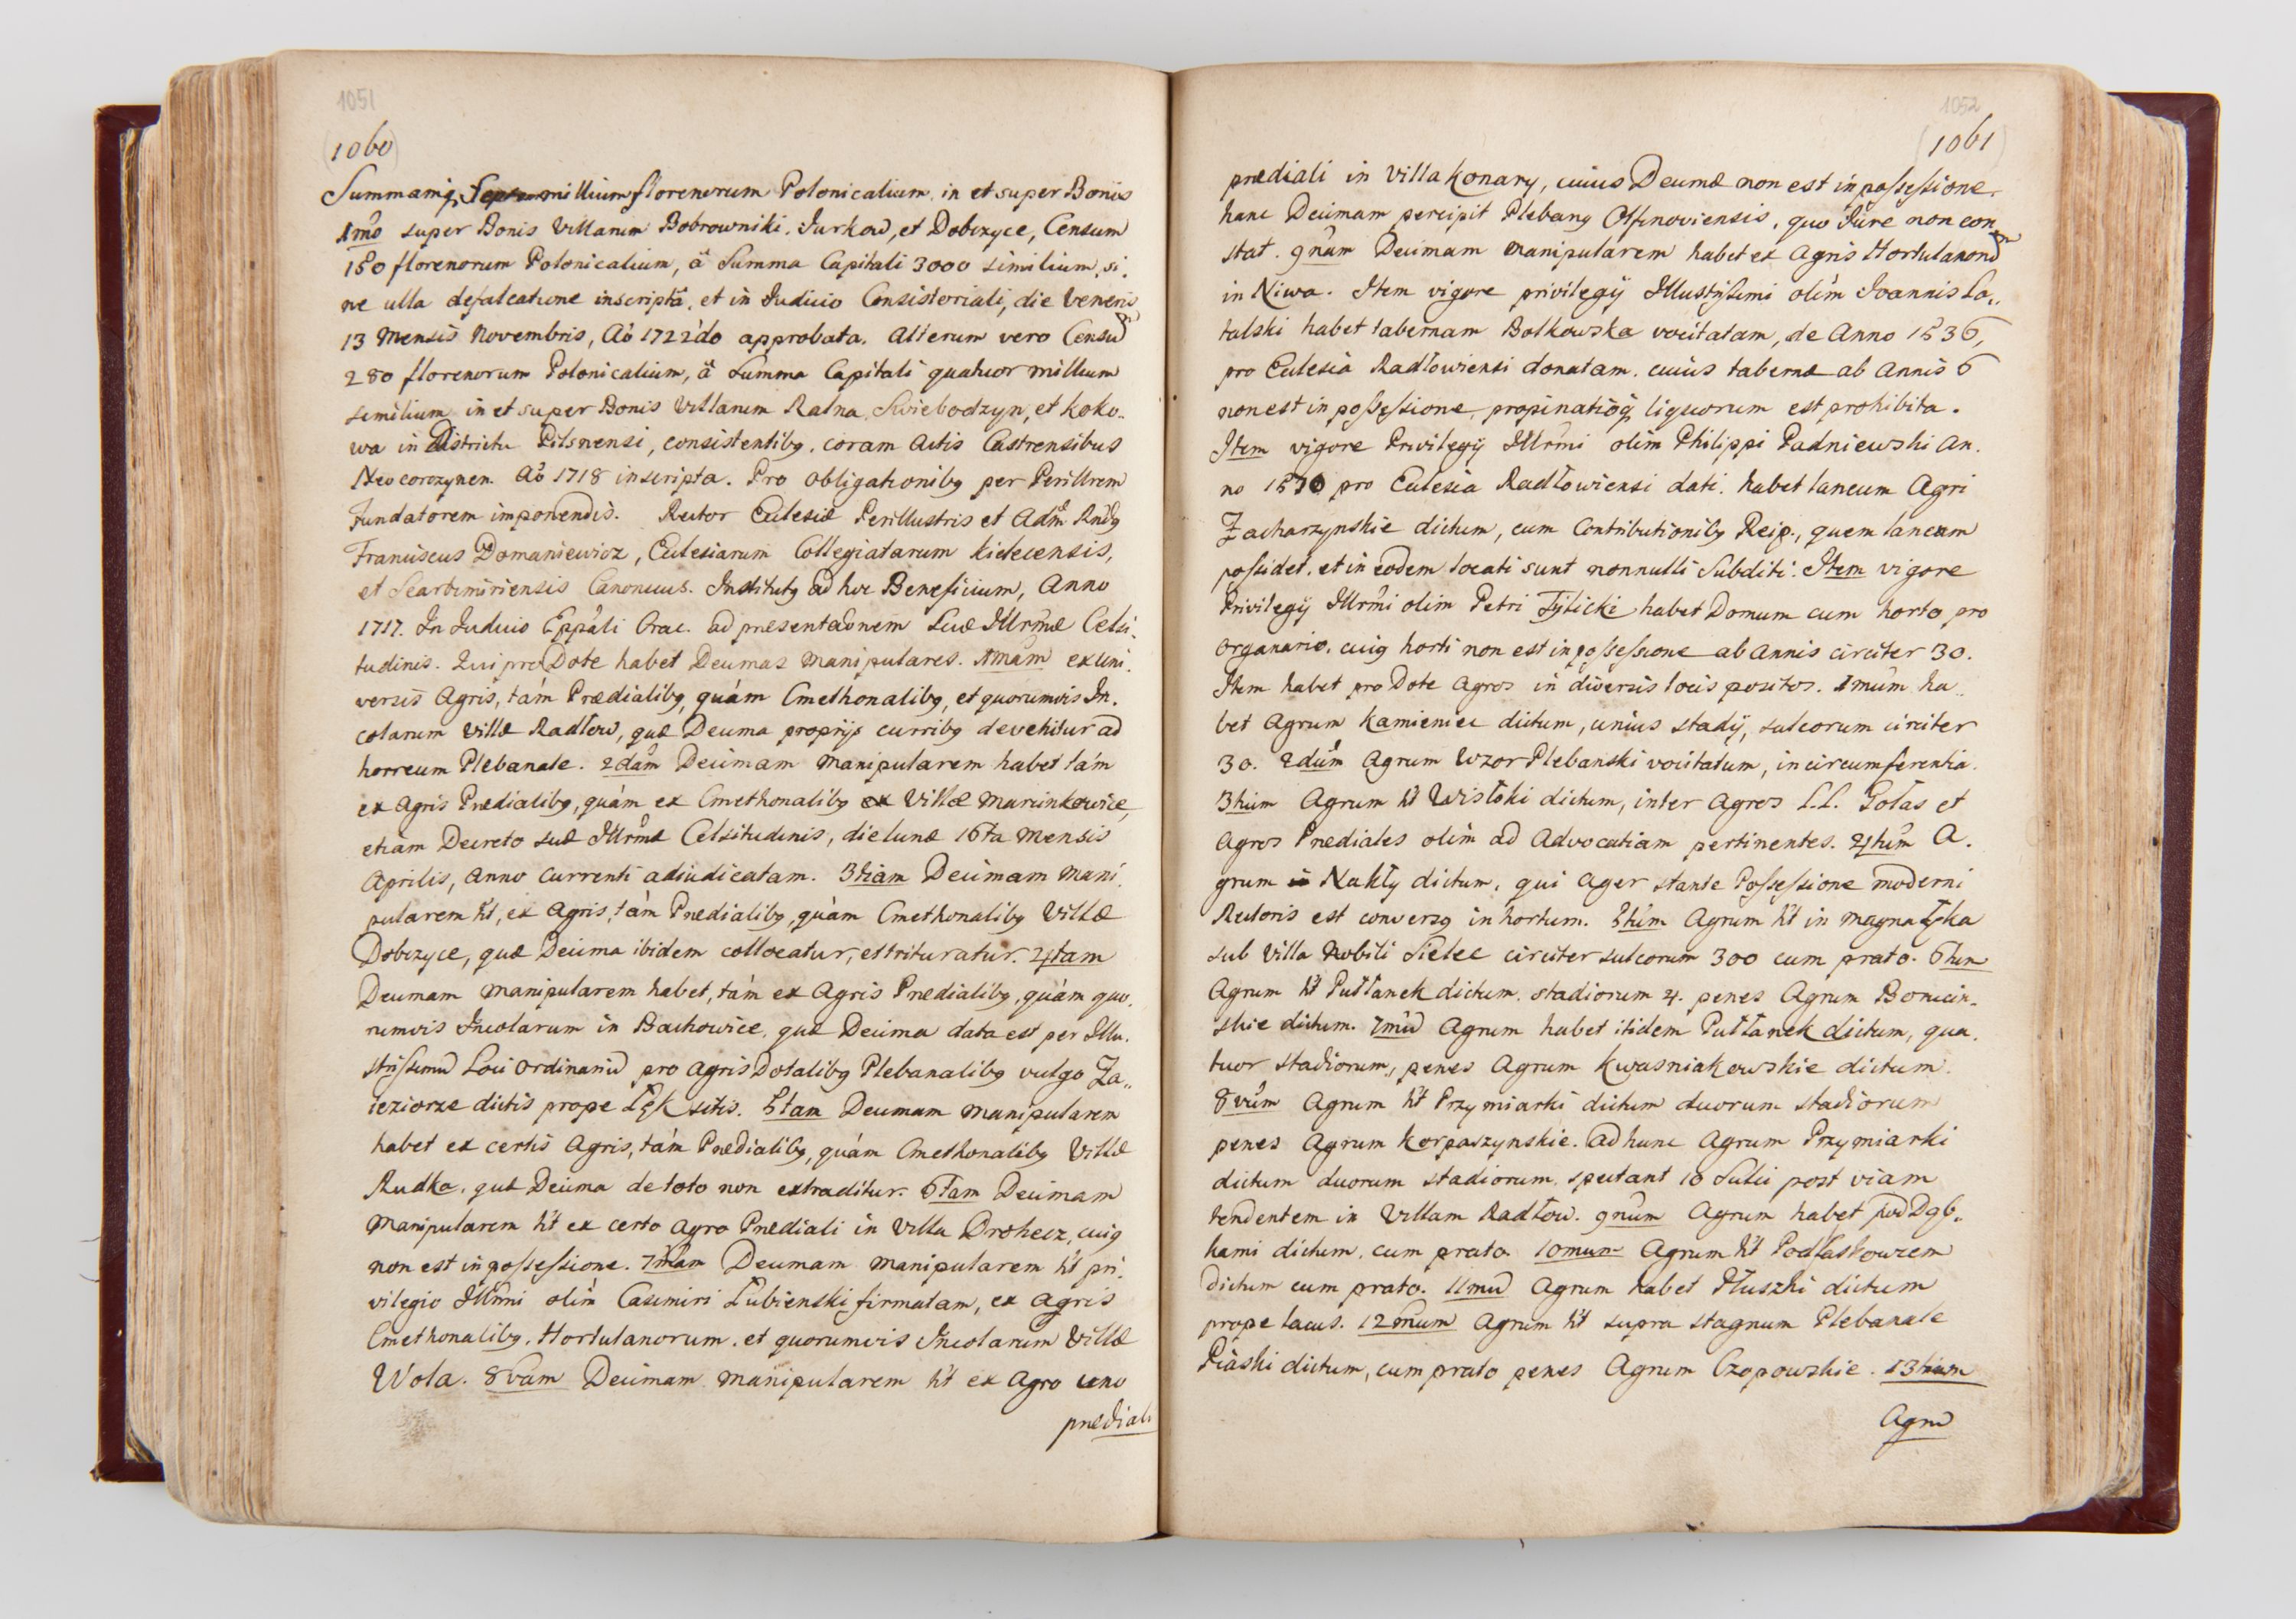 1051
(1060)
Summamq, Septem millium florenorum Polonicalium in et super Bonis
1mo super Bonis Villarum Bobrowniki. Jurkow, et Dobczyce, Censum
150 florenorum Polonicalium, â Summa Capitali 3000 similium, si.
ne ulla defalcatione inscriptâ, et in Judicio Consistoriali, die Veneris
13 Mensis Novembris, Aô 1722do approbata. Alterum vero Censũ
280 florenorum Polonicalium, â Summa Capitali quatuor millium
similium in et super Bonis Villarum Ratna Swiebodzyn, et Koko..
wa in Districtu Pilsnensi, consistentibq, coram Actis Castrensibus
Neocorczynen. Aô 1718 inscripta. Pro obligationibq per Perillrem
Fundatorem imponendis. Rector Ecclesiæ Perillustris et Adm̃ Rndq
Franciscus Domaniewicz, Ecclesiarum Collegiatarum Kielecensis,
et Scarbimiriensis Canonicus. Institutq ad hoc Beneficium, Anno
1717. In Judicio Eppáli Crac. ad præsentaõnem Suæ Illrmæ Celsi.
tudinis. Qui pro Dote habet Decimas manipulares. 1mam ex uni.
versis Agris, tám Prædialibq, quám Cmethonalibq, et quorumvis In.
colarum Villæ Radłow, quæ Decima proprijs curribq devehitur ad
horreum Plebanale. 2dam Decimam manipularem habet tám
ex Agris Prædialibq, quám ex Cmethonalibq ex Villæ Marcinkowice,
etiam Decreto suæ Illrmæ Celsitudinis, die lunæ 16ta Mensis
Aprilis, Anno currenti adiudicatam. 3tiam Decimam mani.
pularem ht, ex Agris, tám Prædialibq, quám Cmethonalibq Villæ
Dobczyce, quæ Decima ibidem collocatur, et trituratur. 4tam
Decimam manipularem habet, tám ex Agris Prædialibq, quám quo.
rumvis Incolarum in Bachowice, quæ Decima data est per Illu.
strissimũ Loci Ordinariũ pro Agris Dotalibq Plebanalibq vulgo Za..
ieziorze dictis prope Łęk sitis. 5tam Decimam manipularem
habet ex certis Agris, tám Prædialibq, quám Cmethonalibq Villæ
Rudka. quæ Decima de toto non extraditur. 6tam Decimam
manipularem ht ex certo agro Prædiali in Villa Drohecz, cuiq
non est in possessione. 7mam Decimam manipularem ht pri.
vilegio Illrmi olim Casimiri Łubienski firmatam, ex Agris
Cmethonalibq. Hortulanorum. et quorumvis Incolarum Villæ
Wola. 8vam Decimam manipularem ht ex Agro uno
prædiali
1052
(1061)
prædiali in Villa Konary, cuius Decimæ non est in possessione.
hanc Decimam percipit Plebanq Olsinoviensis, quo Jure non con.
stat. 9nam Decimam manipularem habet ex Agris Hortulanorũ
in Niwa. Item vigore privilegij Illustrissimi olim Joannis La..
talski habet tabernam Bolkowska vocitatam, de Anno 1536,
pro Ecclesia Radłowiensi donatam. cuius tabernæ ab annis 6
non est in possessione, propinatioq liquorum est prohibita.
Item vigore Privilegij Illrmi olim Philippi Padniewski An.
no 1570 pro Ecclesia Radłowiensi dati. habet laneum Agri
Zacharzynskie dictum, cum Contributionibq Reip., quem laneum
possidet. et in eodem locati sunt nonnulli Subditi. Item vigore
Privilegij Illrmi olim Petri Tylicki habet Domum cum horto, pro
organario. cuiq horti non est in possessione ab annis circiter 30.
Item habet pro Dote Agros in diversis locis positos. 1mum ha..
bet Agrum Kamieniec dictum, unius stadij, sulcorum circiter
30. 2dum Agrum Wzor Plebanski vocitatum, in circumferentia.
3tium Agrum ht Wistoki dictum, inter Agros S.S. Gołas et
Agros Prædiales olim ad Advocatiam pertinentes. 4tum A.
grum Nakły dictum, qui Ager stante Possessione moderni
Rectoris est conversq in hortum. 5tum Agrum ht in magna Łęka
sub Villa Nobili Sielec circiter sulcorum 300 cum prato. 6tum
Agrum ht Pułłanek dictum. stadiorum 4. penes Agrum Bonicin.
skie dictum. 7mũ Agrum habet itidem Pułłanek dictum, qua.
tuor stadiorum, penes Agrum Kwasniakowskie dictum.
8vum Agrum ht Przymiarki dictum duorum stadiorum
penes Agrum Korpaszynskie. Ad hunc Agrum Przymiarki
dictum duorum stadiorum, spectant 10 Sulci post viam
tendentem in Villam Radłow. 9num Agrum habet pod Dęb..
kami dictum, cum prato. 10mum Agrum ht Podłaskowzem
dictum cum prato. 11mũ Agrum habet Płuszki dictum
prope lacus. 12mum Agrum ht supra stagnum Plebanale
Piaski dictum, cum prato penes Agrum Czopowskie. 13tium
Agrũ